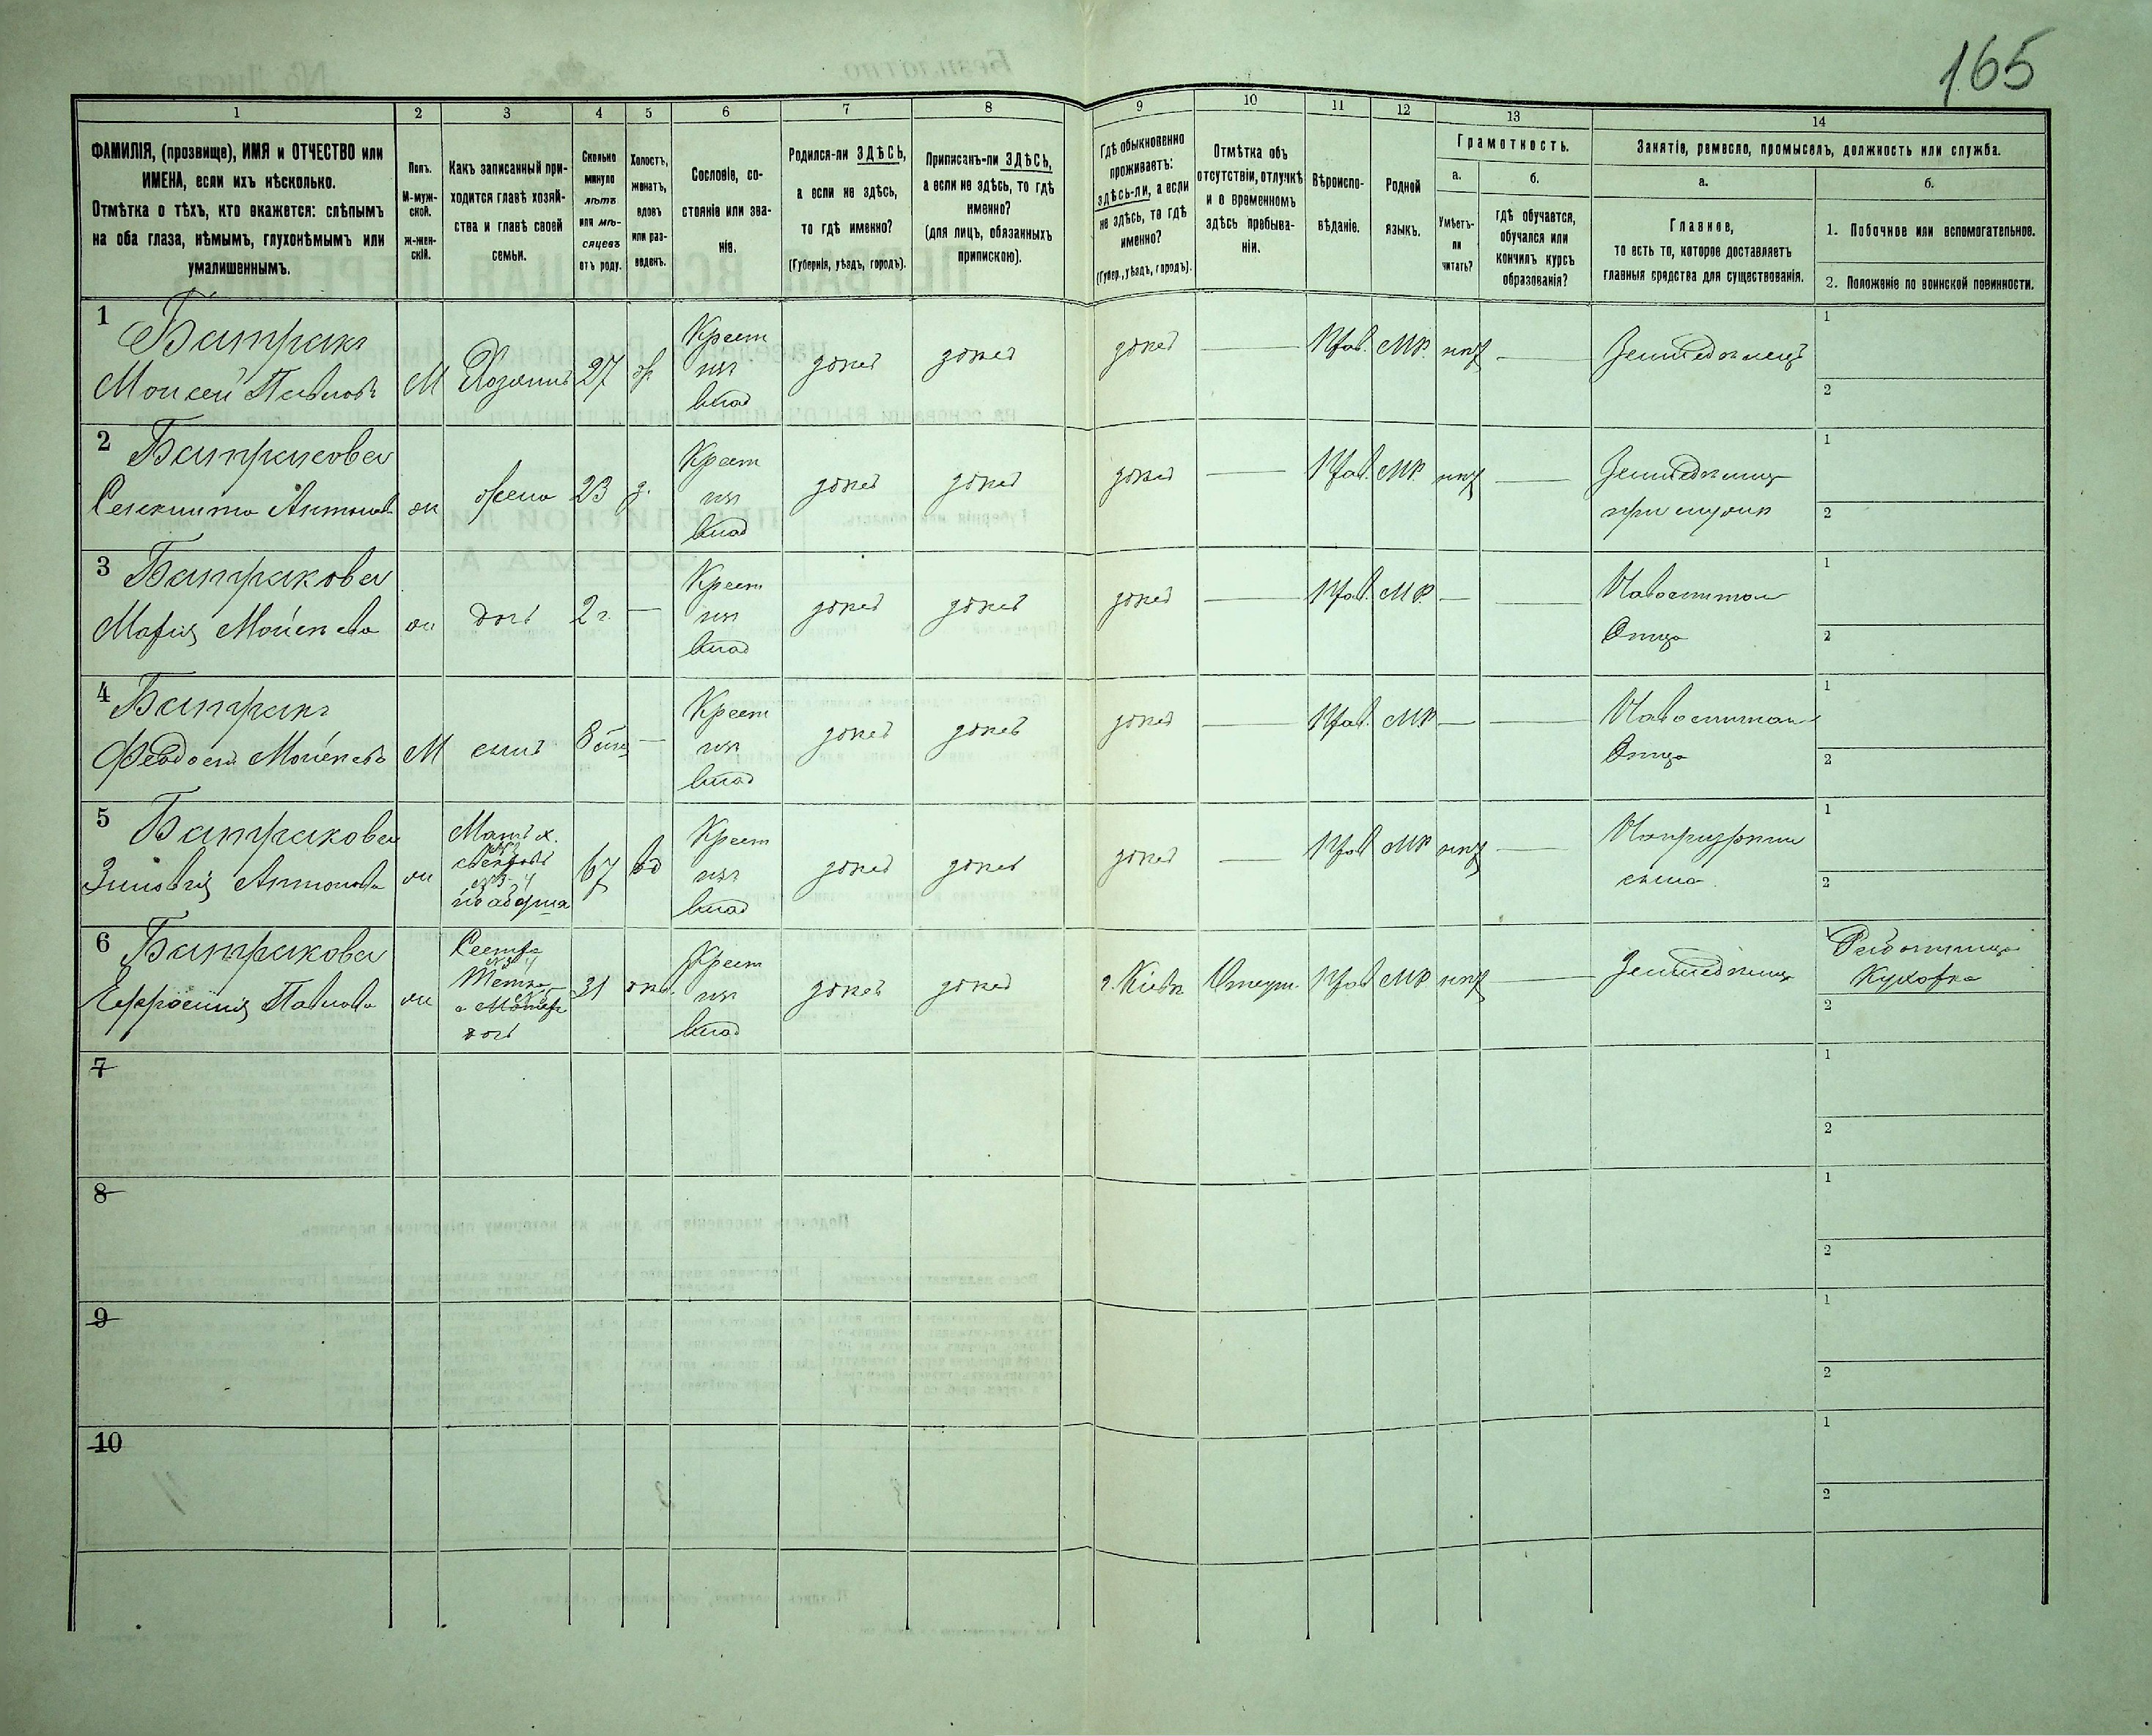 165
1 2 3 4 5 6 7 8 9 10 11 12 13 14
ФАМИЛІЯ, (прозвище), ИМЯ и ОТЧЕСТВО или
ИМЕНА, если ихъ нѣсколько.
Отмѣтка о тѣхъ, кто окажется: слѣпымъ
на оба глаза, нѣмымъ, глухонѣмымъ или
умалишеннымъ.
Полъ.
М-муж-
ской.
Ж-жен-
скій.
Какъ записанный при-
ходится главѣ хозяй-
ства и главѣ своей
семьи.
Сколько
минуло
лѣтъ
или мѣ-
сяцевъ
отъ роду.
Холостъ,
женатъ,
вдовъ
или раз-
веденъ.
Сословіе, со-
стояніе или зва-
ніе.
Родился-ли ЗДѢСЬ,
а если не здѣсь,
то гдѣ именно?
(Губернія, уѣздъ, городъ).
Приписанъ-ли ЗДѢСЬ,
а если не здѣсь, то гдѣ
именно?
(для лицъ, обязанныхъ
припискою).
Гдѣ обыкновенно
проживаетъ:
здѣсь-ли, а если
не здѣсь, то гдѣ
именно?
(Губер., уѣздъ, городъ).
Отмѣтка объ
отсутствіи, отлучкѣ
и о временномъ
здѣсь пребыва-
ніи.
Вѣроиспо-
вѣданіе.
Родной
языкъ.
Грамотность.
а.
Умѣетъ-
ли
читать?
б.
гдѣ обучается,
обучался или
кончилъ курсъ
образованія?
Занятіе, ремесло, промыселъ, должность или служба.
а.
Главное,
то есть то, которое доставляетъ
главныя средства для существованія.
б.
1. Побочное или вспомогательное.
2. Положеніе по воинской повинности.
1 Батракъ
Моисей Павловъ М Хозяинъ 27 ж Крест
изъ
влад здѣсь здѣсь здѣсь — Прав. МР. нѣт — Земледѣлецъ
1
2
2 Батракова
Антонова ж жена 23 з. Крест
изъ
влад здѣсь здѣсь здѣсь — Прав. МР. нѣт — Земледѣлица
при мужѣ
1
2
3 Батракова
Марія Моисеева ж дочь 2 г. — Крест
изъ
влад здѣсь здѣсь здѣсь — Прав. МР. — —
Отца
1
2
4 Батракъ
Феодосій Моисеевъ М сынъ 8 — Крест
изъ
влад здѣсь здѣсь здѣсь — Прав. МР — —
Отца
1
2
5 Батракова
Зиновія Антонова ж Мать х.
№2
свекровь
№3-4
67 вд Крест
изъ
влад здѣсь здѣсь здѣсь — Прав МР нѣт —
сына
1
2
6 Батракова
Ефросинія Павлова ж Сестра
№3 4
Тетка
дочь 31 Крест
изъ
влад здѣсь здѣсь г. Кіевъ Отсут. Прав МР нѣт — Земледѣлица
1 Работница
Кухарка
2
7
1
2
8
1
2
9
1
2
10
1
2